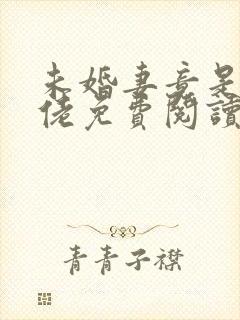 未婚妻竟是
佬免費閱讀
青青子襟